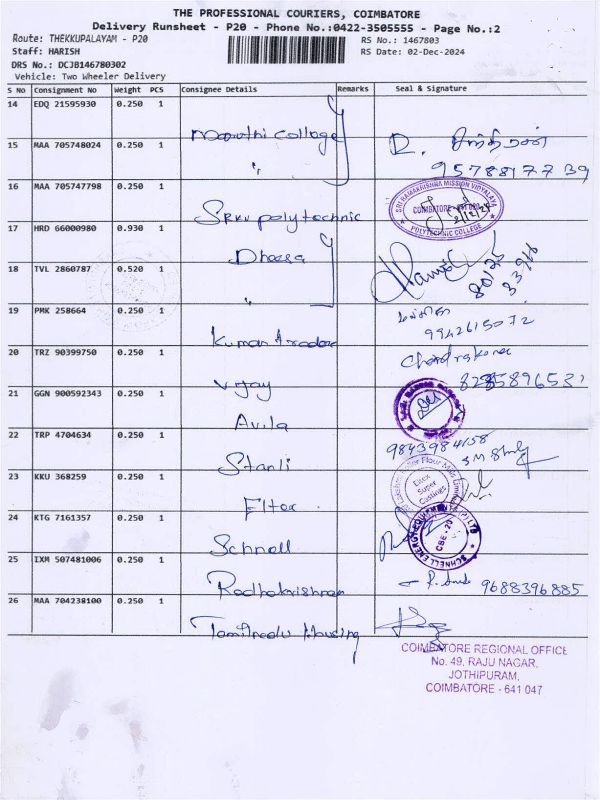 THE PROFESSIONAL COURIERS, COIMBATORE
Delivery Runsheet - P20 - Phone No.:0422-3505555 - Page No.:2
Route: THEKKUPALAYAM - P20
RS No.: 1467803
Staff: HARISH
RS Date: 02-Dec-2024
DRS No.: DCJB146780302
Vehicle: Two Wheeler Delivery
S No Consignment No Weight PCS Consignee Details Remarks Seal & Signature
14 EDQ 21595930 0.250 1
Maruthi College
15 MAA 705748024 0.250 1
"
95788177 39
16 MAA 705747798 0.250 1
SRKV polytechnic
SRI RAMAKRISHNA MISSION VIDYALAYA
POLYTECHNIC COLLEGE
17 HRD 66000980 0.930 1
Dheera
18 TVL 2860787 0.520 1
"
19 PMK 258664 0.250 1
Kuman traders
9942615072
20 TRZ 90399750 0.250 1
Vijay
21 GGN 900592343 0.250 1
Avila
22 TRP 4704634 0.250 1
Stanli
23 KKU 368259 0.250 1
Eltex
Eltex
Super
Castings
24 KTG 7161357 0.250 1
Schnell
CBE-20
25 IXM 507481006 0.250 1
Radhakrishnan
9688396885
26 MAA 704238100 0.250 1
Tamilnadu Housing
COIMBATORE REGIONAL OFFICE
No. 49, RAJU NAGAR,
JOTHIPURAM,
COIMBATORE - 641 047